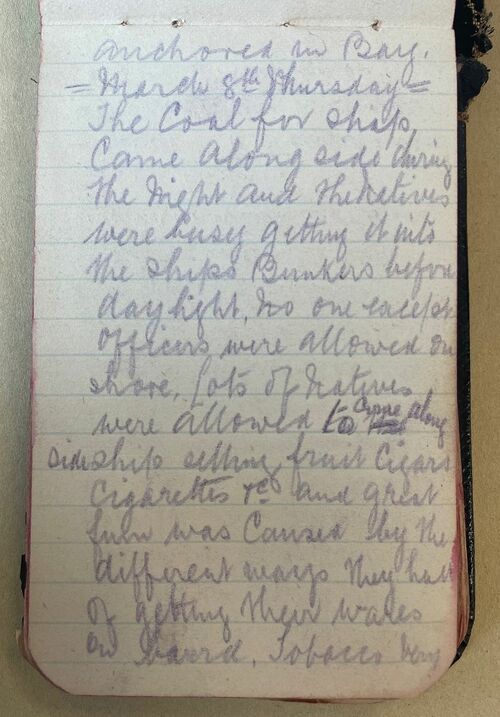 anchored in Bay.
= March 8th Thursday =
The Coal for ship,
Came along side during
the Night and the Natives
were busy getting it into
the ships Bunkers before
daylight, No one except
Officers were allowed on
shore, Lots of Natives
were allowed to come along
side ship selling fruit Cigars
Cigarettes &c and great
fun was Caused by the
different ways they had
of getting their wares
on board. Tobacco very